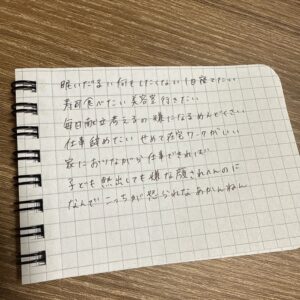 眠い だるい 何もしたくない 1日寝てたい
寿司食べたい 美容室行きたい
毎日献立考えるの嫌になる めんどくさい
仕事辞めたい せめて在宅ワークがいい
家におりながら仕事できれば
子ども熱出しても嫌な顔されへんのに
なんでこっちが怒られなあかんねん